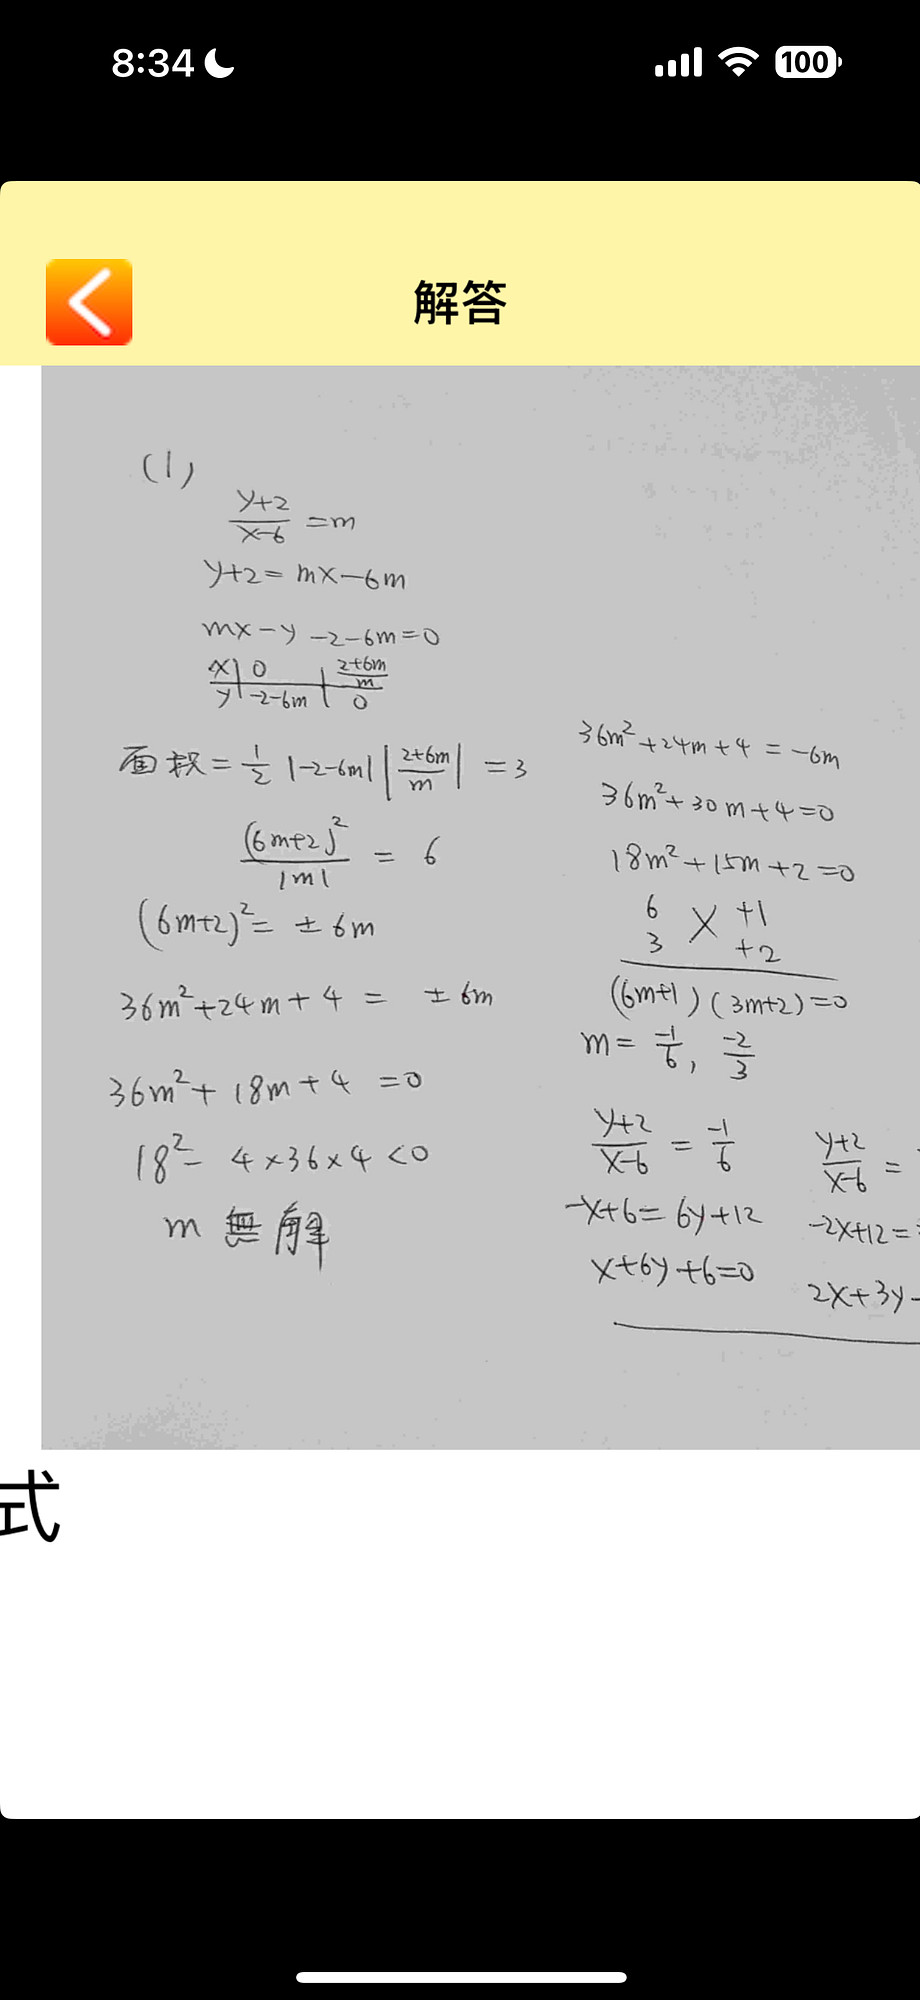 8:34
100
解答
(1)
y+2/x-6 = m
y+2 = mx-6m
mx-y-2-6m=0
x | 0 | 2+6m/m
y | -2-6m | 0
面积 = 1/2 |-2-6m| |2+6m/m| = 3
(6m+2)²/|m| = 6
(6m+2)² = ±6m
36m²+24m+4 = ±6m
36m²+18m+4 =0
18²- 4×36×4 <0
m 無解
36m²+24m+4 = -6m
36m²+30m+4=0
18m²+15m+2=0
6 +1
╳
3 +2
(6m+1)(3m+2)=0
m= -1/6, -2/3
y+2/x-6 = -1/6
-x+6= 6y+12
x+6y+6=0
y+2/x-6 =
-2x+12=
2x+3y-
式